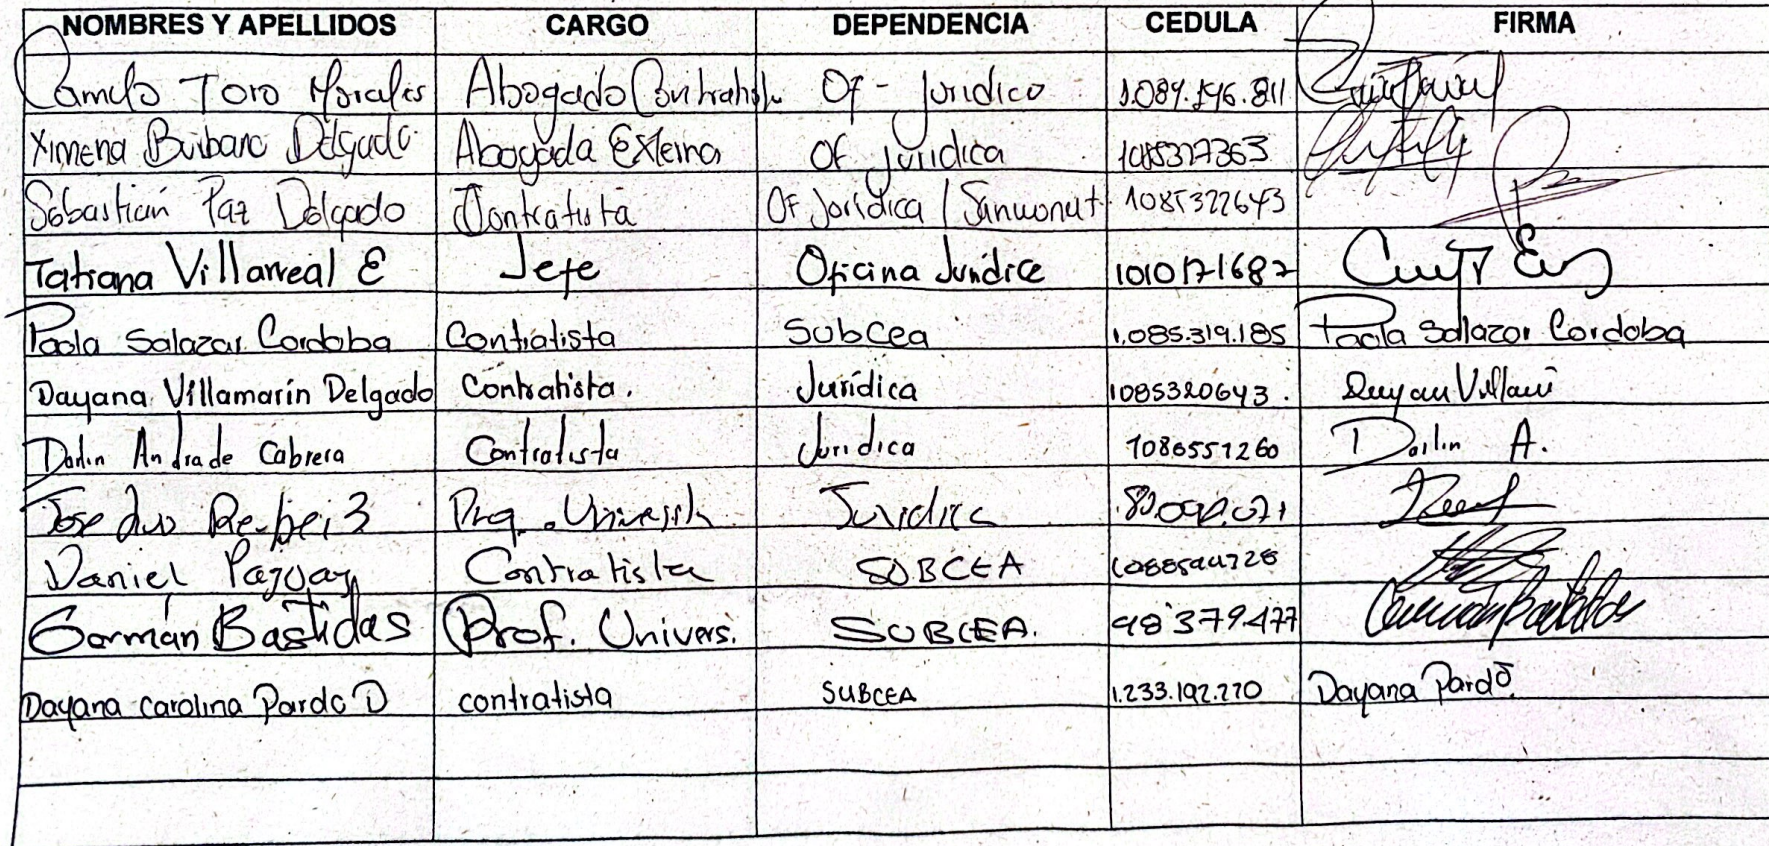 NOMBRES Y APELLIDOS CARGO DEPENDENCIA CEDULA FIRMA
Camilo Toro Morales Abogado Contratista Of - Juridico 1.089.196.811
Ximena Burbano Delgado Abogada Externa Of juridica 1085327363
Sebastián Paz Delgado Contratista OF Jorídica / 1085322643
Tatiana Villarreal E Jefe Oficina 1010171682
Paola Salazar Cordoba Contratista Subcea 1.085.319.185 Paola Salazar Cordoba
Dayana Villamarín Delgado Contratista. Jurídica 1085320643.
Andrade Cabrera Contratista Juridica 1086551260 A.
Jose Juridica
Daniel Contratista SUBCEA
Germán Bastidas Prof. Univers. SUBCEA. 98'379.477
Dayana carolina Pardo D contratista SUBCEA 1.233.192.270 Dayana Pardo